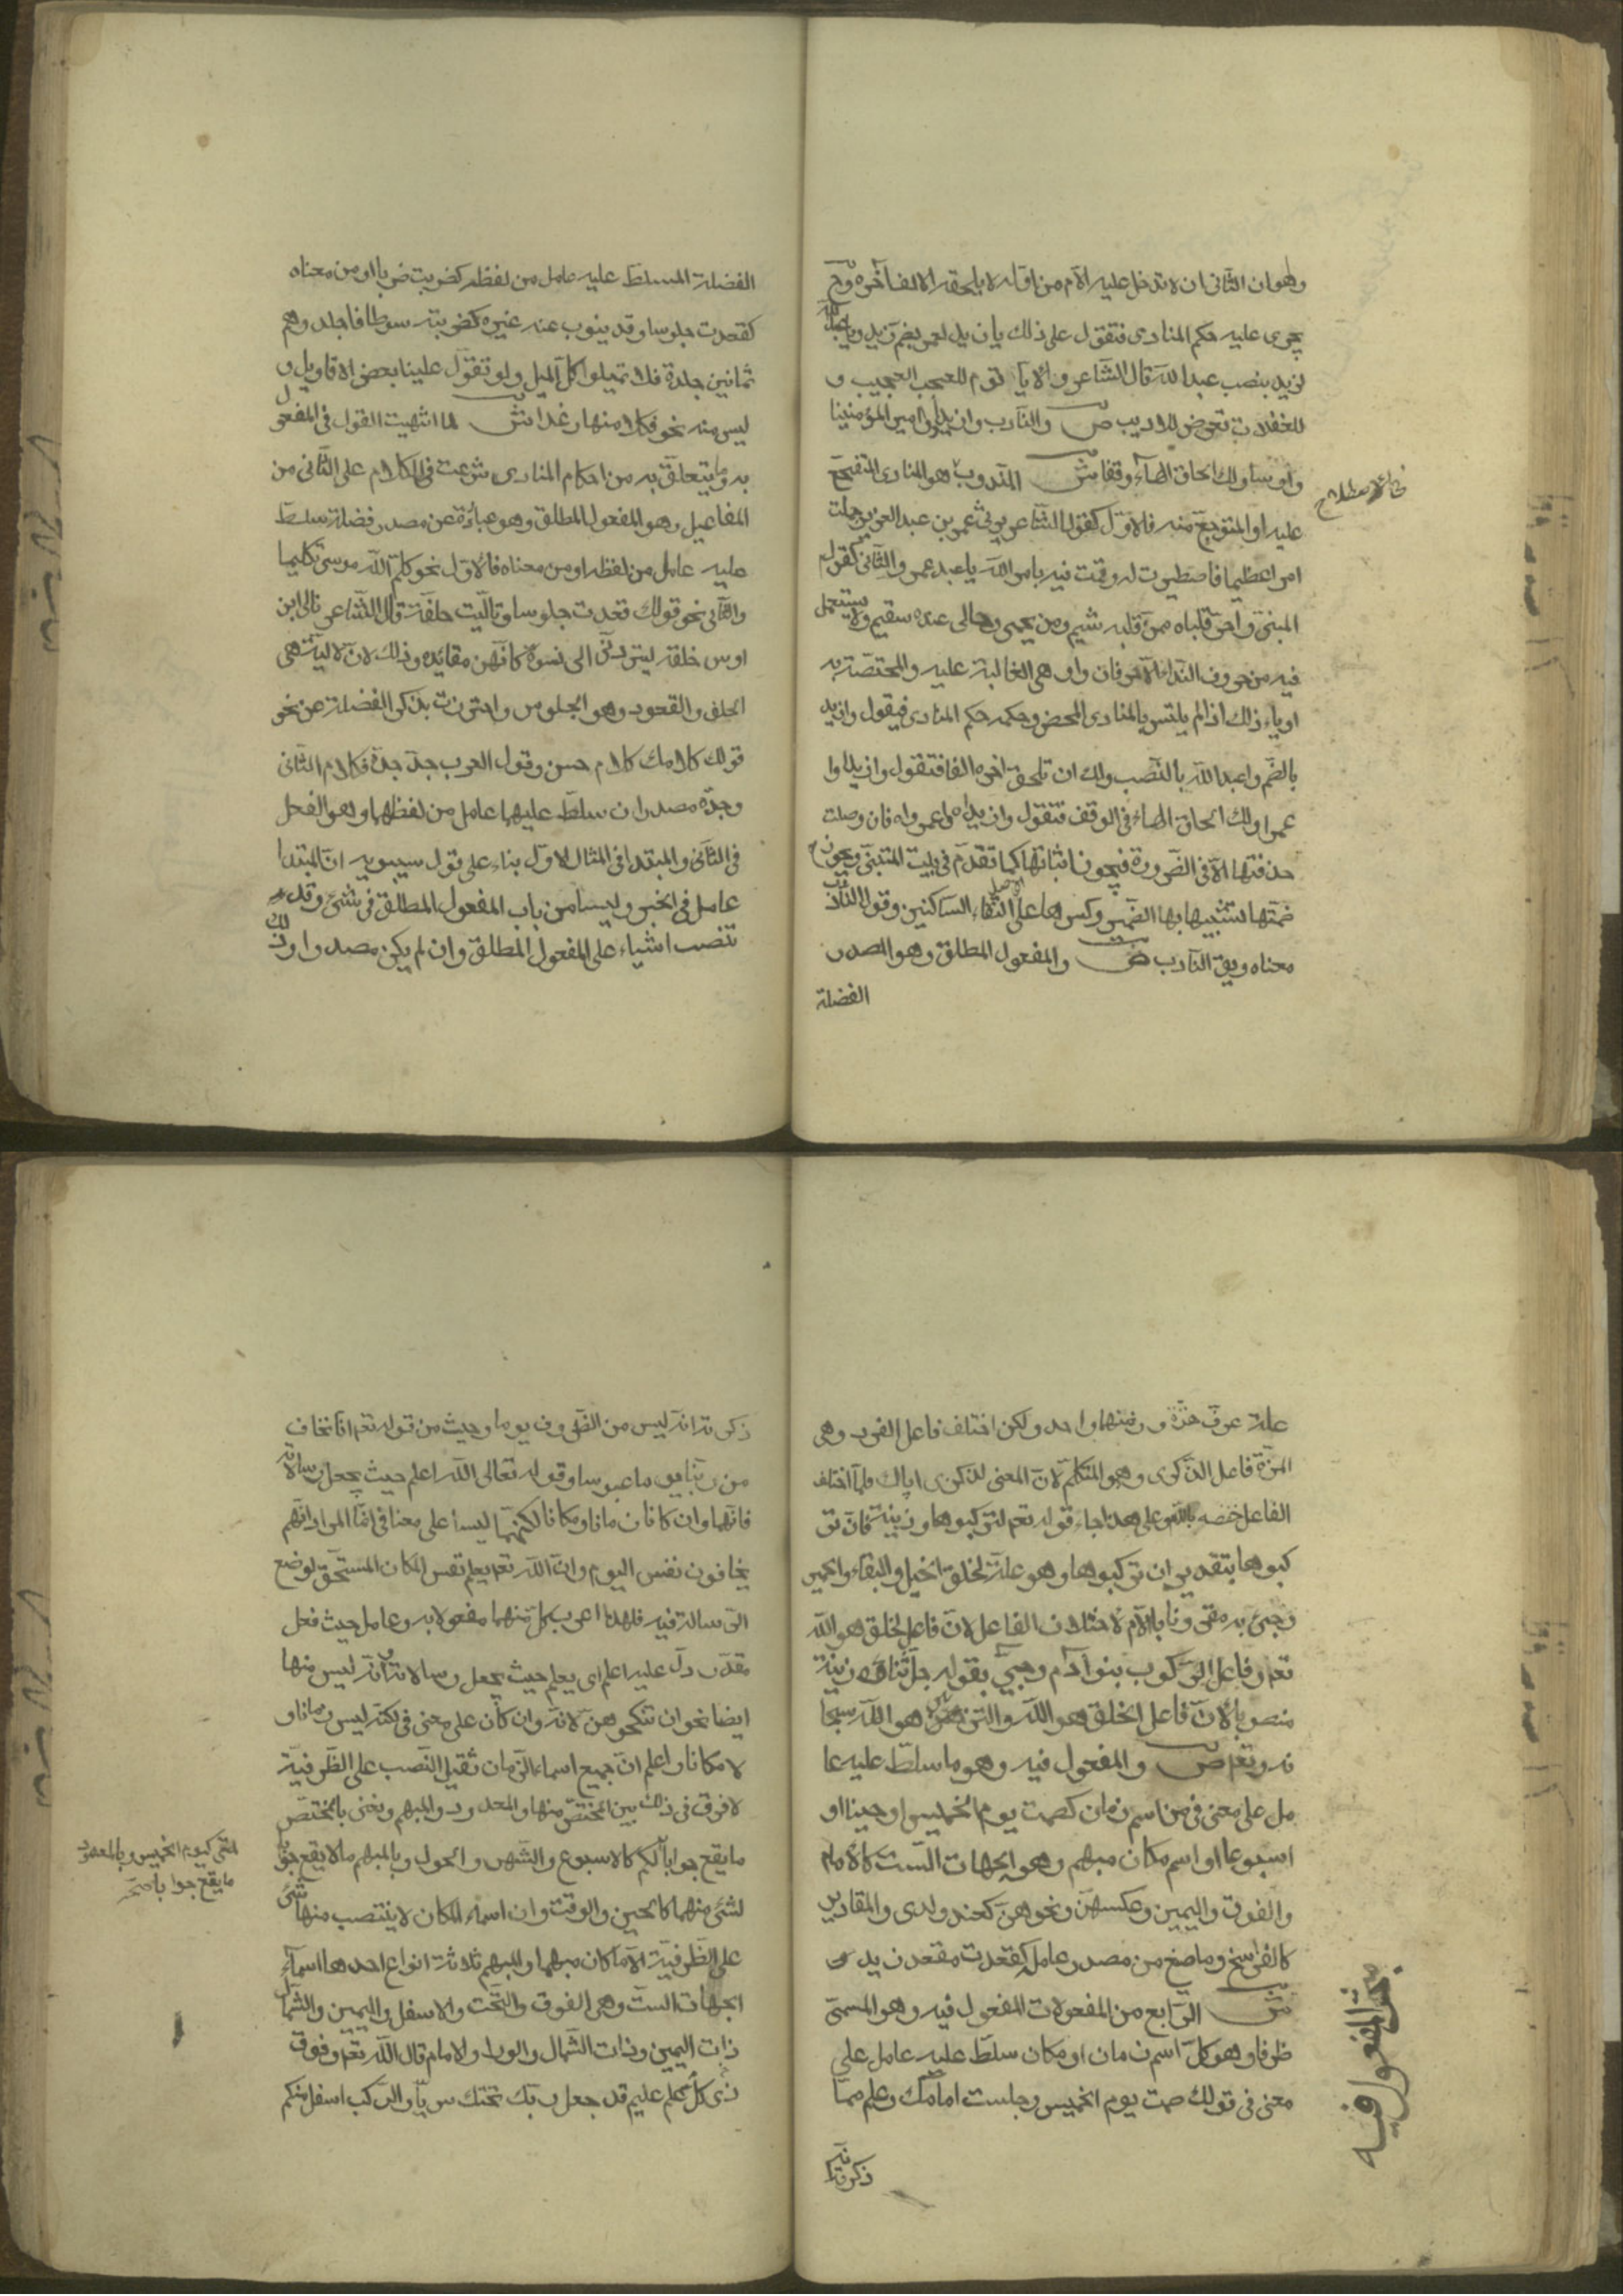 وهو ان الثانى ان لا تدخل عليه اللام من اوله لا يلحقه الالف آخره وح
يجرى عليه حكم المنادى فتقول على ذلك يا زيد لعمرو بضم زيد ويا عبدالله
لزيد بنصب عبدالله قال الشاعر الا يا قوم للعجب العجيب و
للغفلات تعرض للاديب ص والنادب وازيدا وا امير المؤمنينا
وا راسا ولك الحاق الهاء وقفا ش المندوب هو المنادى المتفجع
عليه او المتوجع منه فالاول كقول الشاعر يرثى عمر بن عبد العزيز حملت
امرا عظيما فاصطبرت له وقمت فيه بامر الله يا عمر والثانى كقول
المتنبى واحر قلباه ممن قلبه شبم ومن بجسمى وحالى عنده سقيم ولا يستعمل
فيه من حروف النداء الا حرفان وا وهى الغالبة عليه والمختصة به
او ياء ذلك اذا لم يلتبس بالمنادى المحض وحكمه حكم المنادى فيقول وا زيد
بالضم وا عبد الله بالنصب ولك ان تلحق اخره الفا فتقول وا زيدا وا
عمرا ولك الحاق الهاء فى الوقف فتقول وا زيداه وا عمراه فان وصلت
حذفتها الا فى الضرورة فيجوز اثباتها كما تقدم فى بيت المتنبى ويجوز ح
ضمها تشبيها بها الضمير وكسرها على التقاء الساكنين وقول النادب
معناه ويق النادب ص والمفعول المطلق وهو المصدر
الفضلة
الفضلة المسلط عليه عامل من لفظه كضربت ضربا او من معناه
كقعدت جلوسا وقد ينوب عنه غيره كضربته سوطا فاجلدوهم
ثمانين جلدة فلا تميلوا كل الميل ولو تقول علينا بعض الاقاويل و
ليس منه نحو فكلا منها رغدا ش لما انتهيت القول فى المفعول
به وما يتعلق به من احكام المنادى شرعت فى الكلام على الثانى من
المفاعيل وهو المفعول المطلق وهو عبارة عن مصدر فضلة سلط
عليه عامل من لفظه او من معناه فالاول نحو كلم الله موسى تكليما
والثانى نحو قولك قعدت جلوسا وتاليت حلفة قال الشاعر تالى ابن
اوس حلفة ليردنى الى نسوة كانهن مفائد وذلك لان الالية هى
الحلف والقعود وهو الجلوس واحترزت بذكر الفضلة عن نحو
قولك كلامك كلام حسن وقول العرب جد جده فكلام الثانى
وجده مصدران سلط عليهما عامل من لفظهما وهو الفعل
فى الثانى والمبتدا فى المثال الاول بناء على قول سيبويه ان المبتدا
عامل فى الخبر وليسا من باب المفعول المطلق فى شىء وقد
تنصب اشياء على المفعول المطلق وان لم يكن مصدرا وذلك
علة عرو هزة وزمنهما واحد ولكن اختلف فاعل الفرو هى
الهزة فاعل الذكرى وهو المتكلم لان المعنى لذكرى اياك فلما اختلف
الفاعل خفضه باللام وعلى هذا جاء قوله تعم لتركبوها وزينة فان تر
كبوها بتقدير ان تركبوها وهو علة لخلق الخيل والبغال والحمير
وجىء به مقرونا باللام لاختلاف الفاعل لان فاعل الخلق هو الله
تعم وفاعل الركوب بنو آدم وجىء بقوله جل ثناؤه زينة
منصوبا لان فاعل الخلق هو الله والتزيين هو الله سبحا
نه وتعم ص والمفعول فيه وهو ما سلط عليه عا
مل على معنى فى من اسم زمان كصمت يوم الخميس او حينا او
اسبوعا او اسم مكان مبهم وهو الجهات الست كالامام
والفوق واليمين وعكسهن ونحوهن كعند ولدى والمقادير
كالفراسخ وما صيغ من مصدر عامله كقعدت مقعد زيد
ش الرابع من المفعولات المفعول فيه وهو المسمى
ظرفا وهو كل اسم زمان او مكان سلط عليه عامل على
معنى فى قولك صمت يوم الخميس وجلست امامك وعلم مما
ذكرته
بحث المفعول فيه
ذكرته انه ليس من الظروف يوما وحيث من قوله تعم انا نخاف
من ربنا يوما عبوسا وقوله تعالى الله اعلم حيث يجعل رسالاته
فانهما وان كانا زمانا ومكانا لكنهما ليسا على معنى فى انما المراد انهم
يخافون نفس اليوم وان الله تعم يعلم نفس المكان المستحق لوضع
الرسالة فيه فلهذا اعرب كل منهما مفعولا به وعامل حيث فعل
مقدر دل عليه اعلم اى يعلم حيث يجعل رسالاته وانه ليس منها
ايضا نحو ان تنكحوهن لانه وان كان على معنى فى لكنه ليس زمانا و
لا مكانا واعلم ان جميع اسماء الزمان تقبل النصب على الظرفية
لا فرق فى ذلك بين المختص منها والمعدود والمبهم ونعنى بالمختص
ما يقع جوابا لكم كالاسبوع والشهر والحول وبالمبهم ما لا يقع جوابا
لشىء منهما كالحين والوقت وان اسماء المكان لا ينتصب منها شىء
على الظرفية الا ما كان مبهما والمبهم ثلاثة انواع احدها اسماء
الجهات الست وهى الفوق والتحت والاسفل واليمين والشمال
ذات اليمين وذات الشمال والوراء والامام قال الله تعم وفوق
ذى كل علم عليم قد جعل ربك تحتك سريا والركب اسفل منكم
لمتى كيوم الخميس وبالمعدود
ما يقع جوابا صح